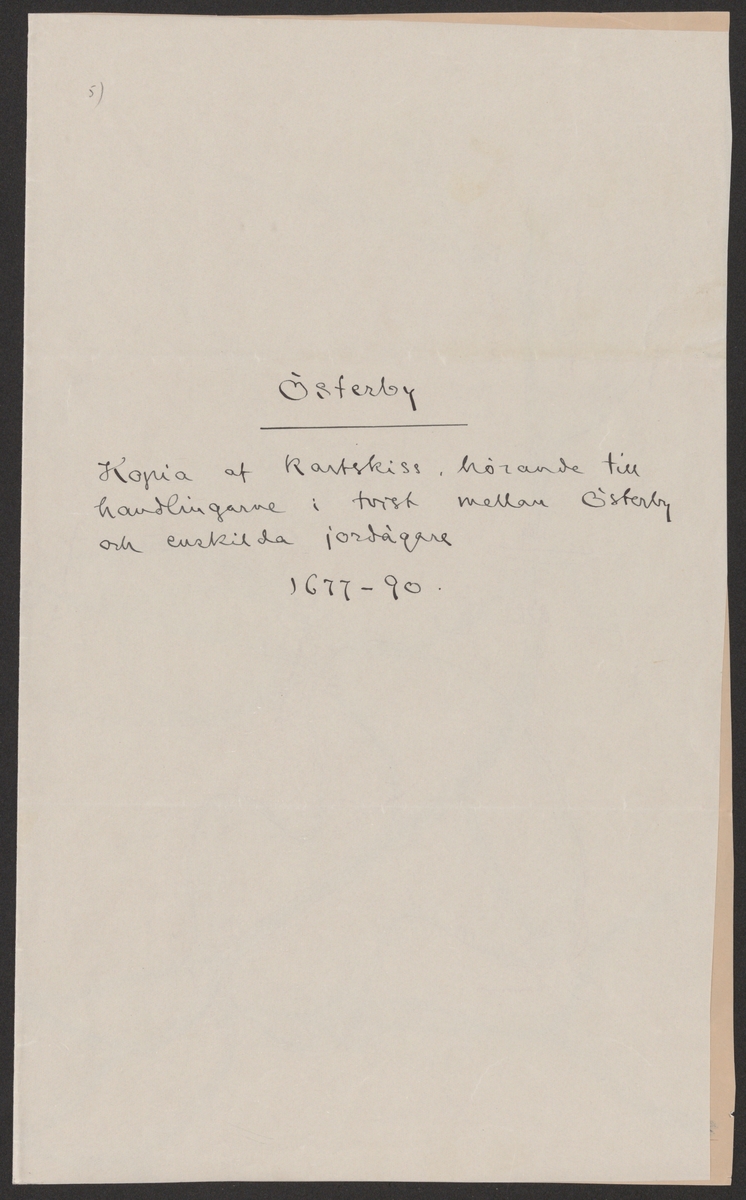 5)
Österby
Kopia af kartskiss, hörande till
handlingarne i tvist mellan Österby
och enskilda jordägare
1677-90.